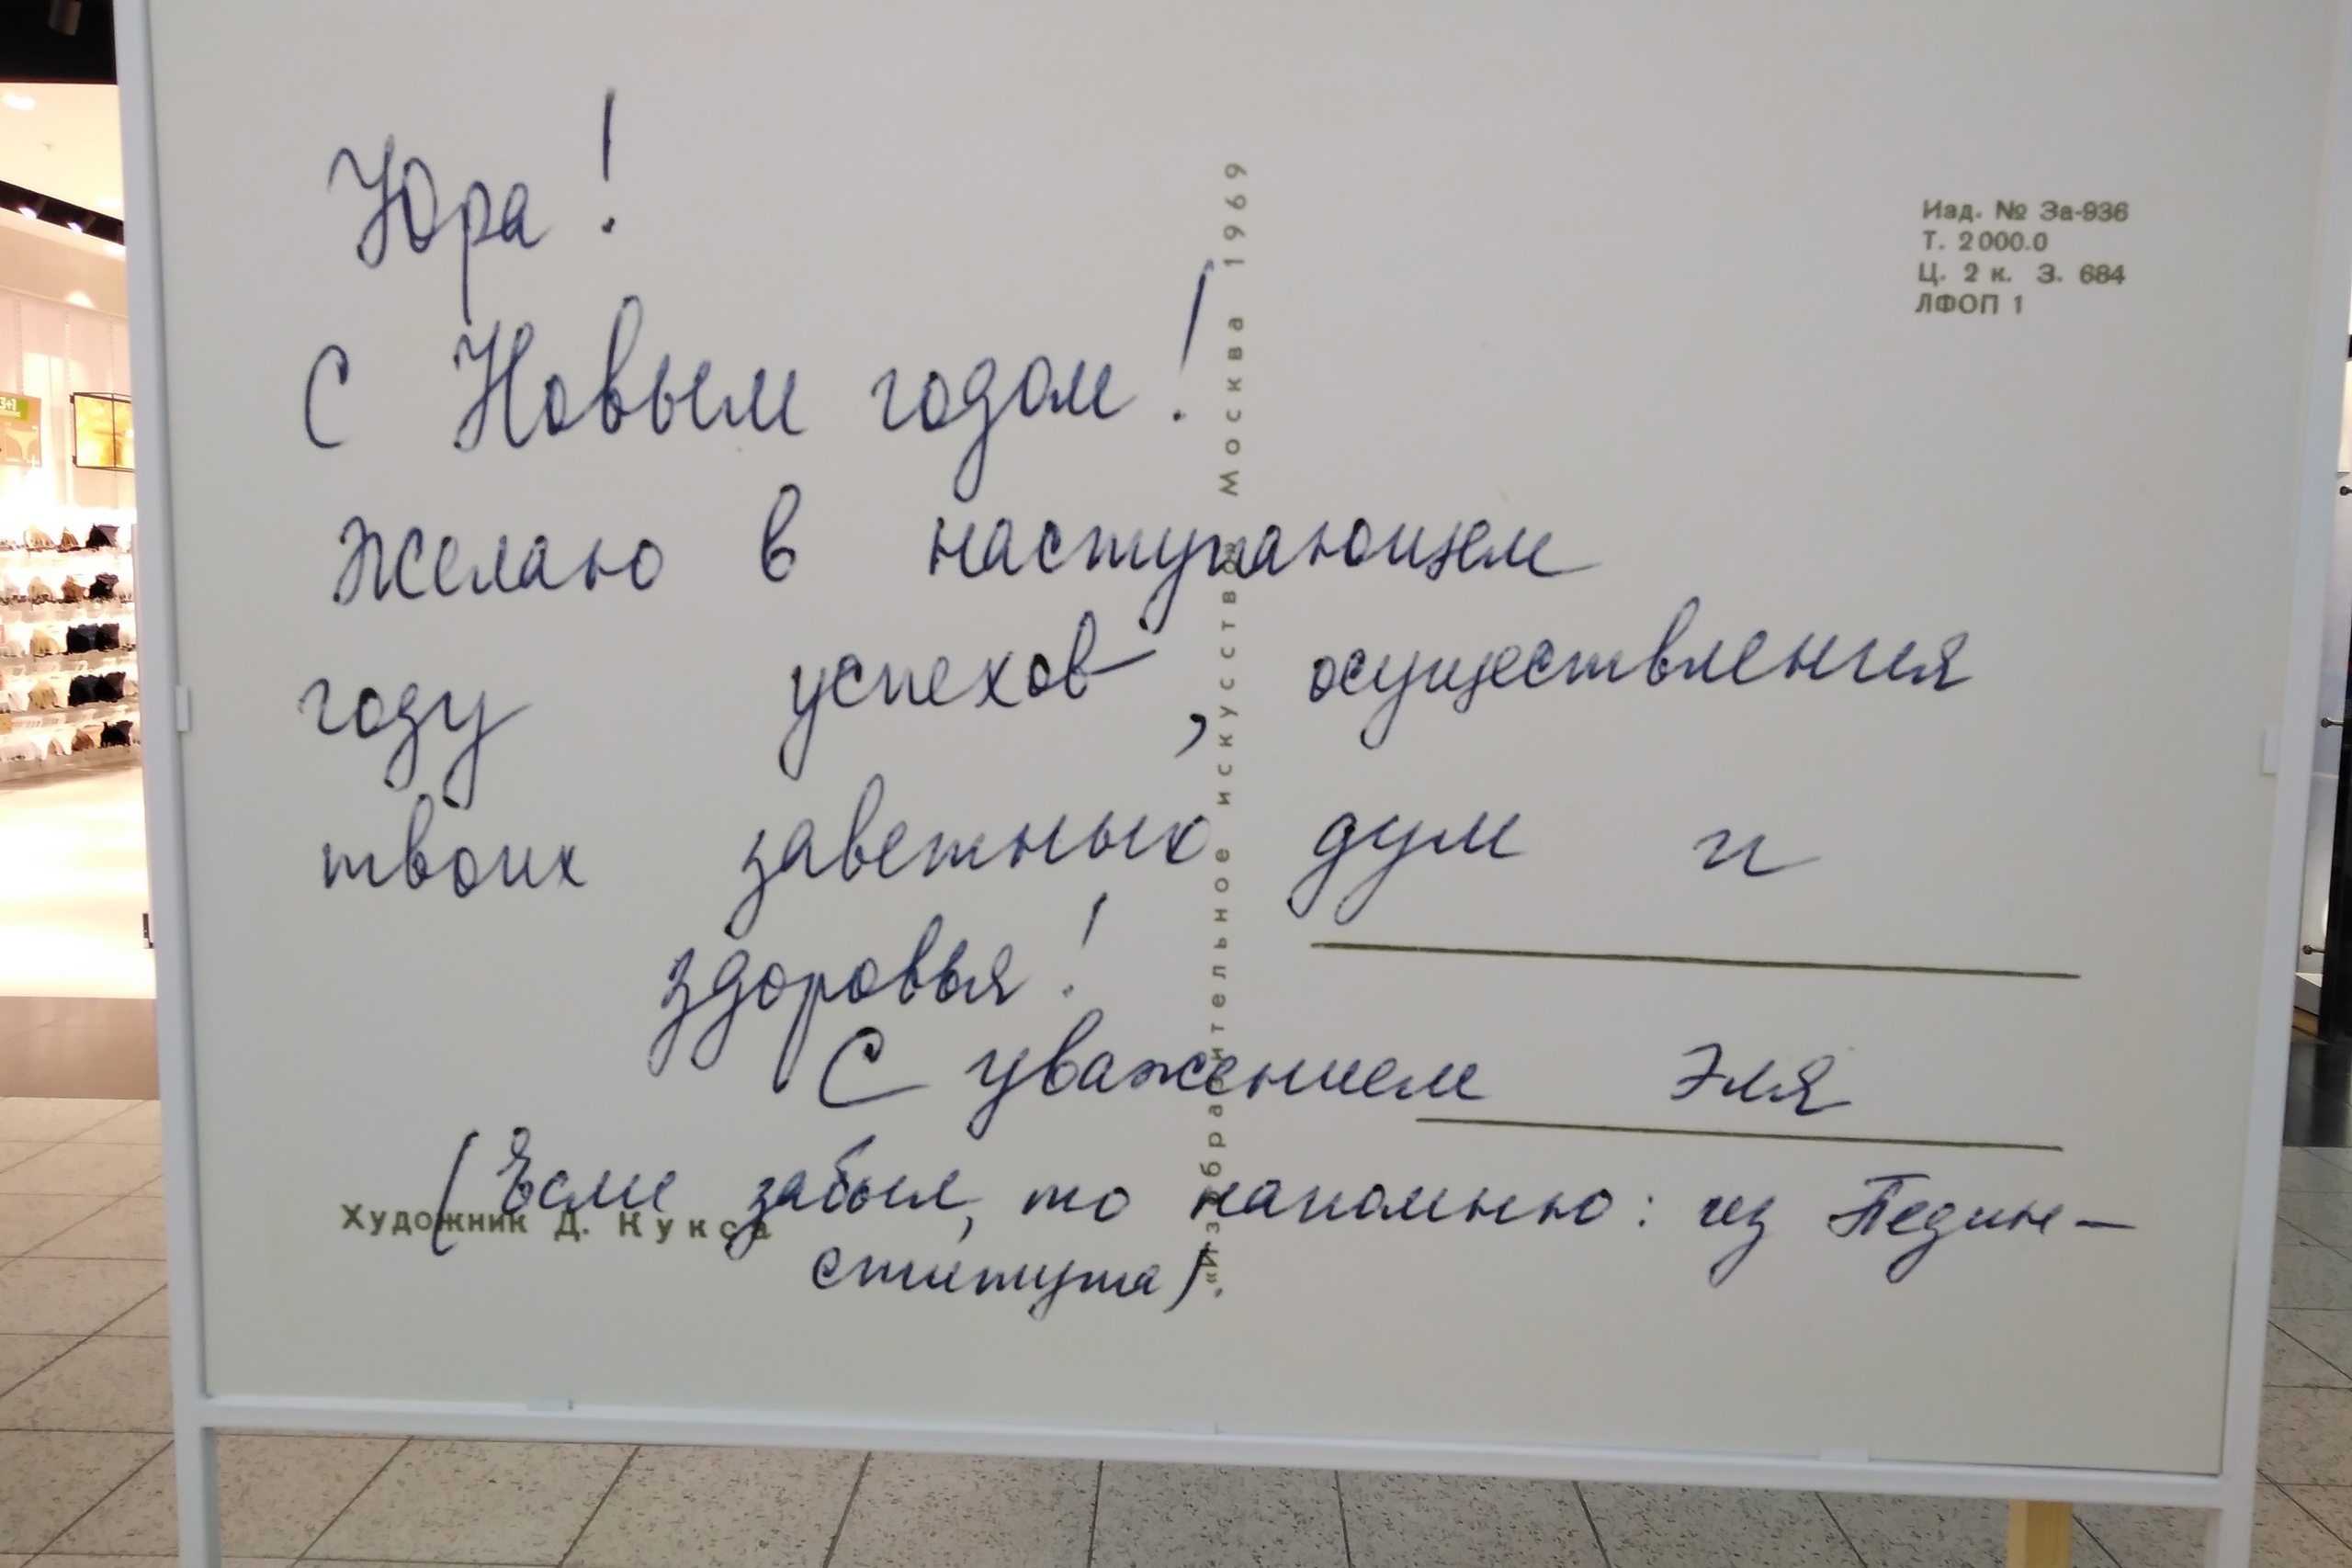 Юра!
С Новым годом!
Желаю в наступающем
году успехов, осуществления
твоих заветных дум и
здоровья!
С уважением Эля
(Если забыл, то напомню: из Педин-
ститута).
Художник Д. Кукса
«Изобразительное искусство» Москва 1969
Изд. № 3а-936
Т. 2000.0
Ц. 2 к. З. 684
ЛФОП 1